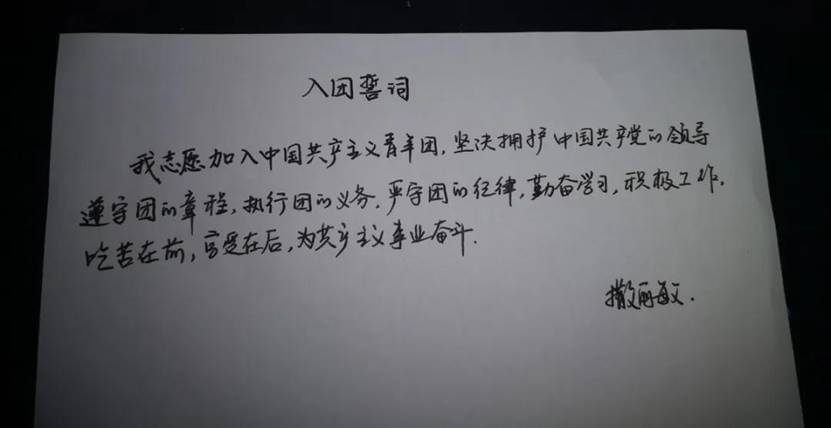 入团誓词
我志愿加入中国共产主义青年团,坚决拥护中国共产党的领导
遵守团的章程,执行团的义务,严守团的纪律,勤奋学习,积极工作,
吃苦在前,享受在后,为共产主义事业奋斗.
撒丽敏.